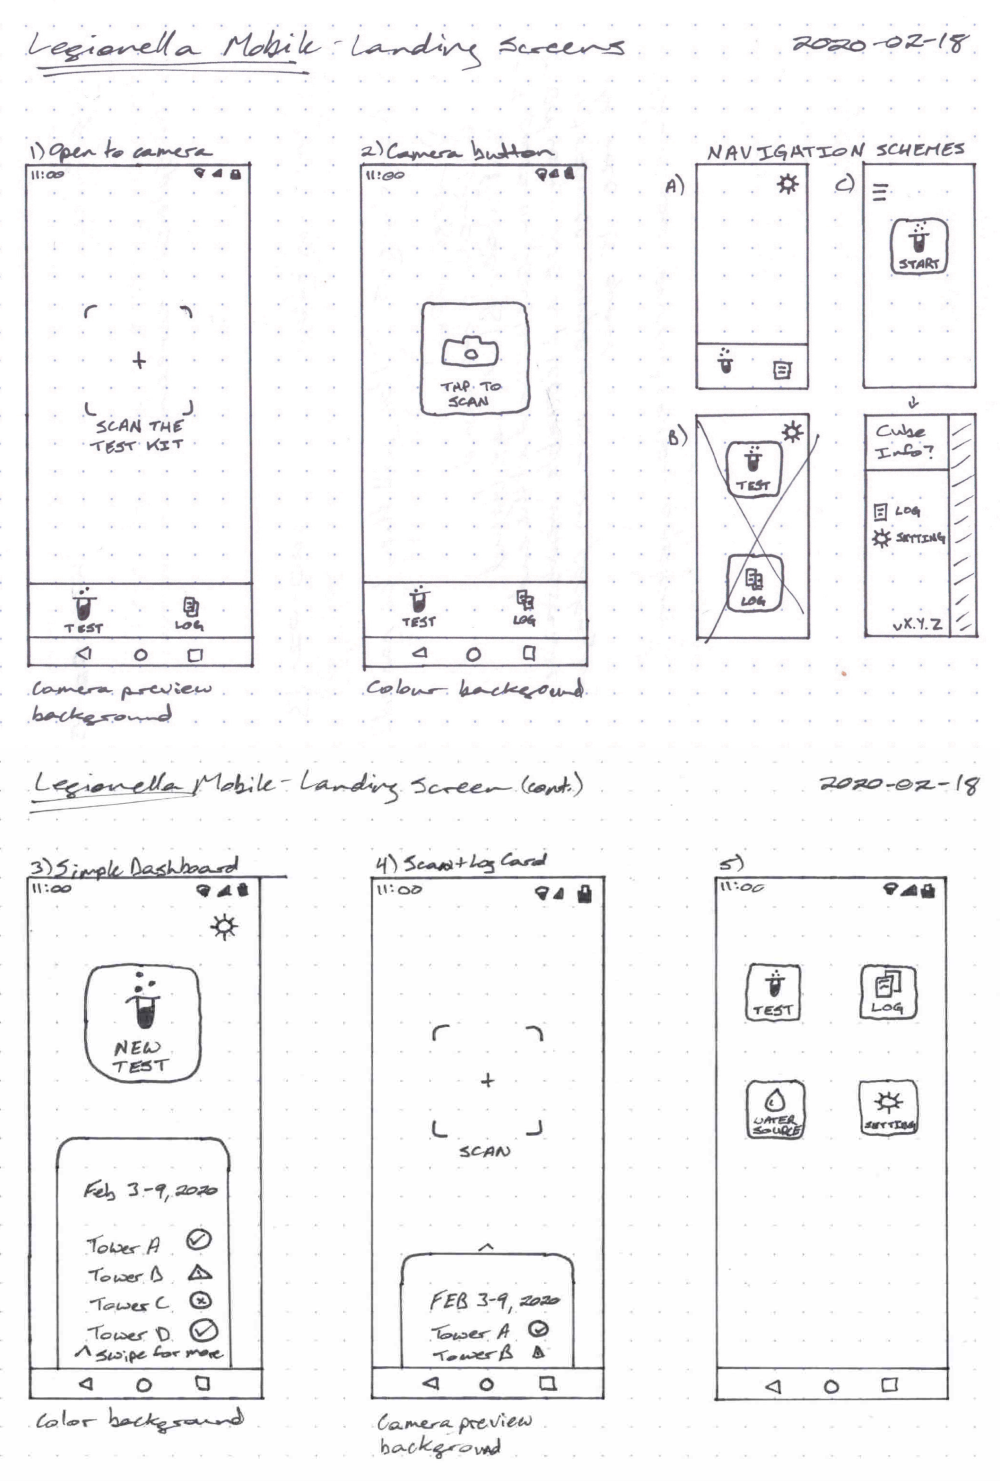 Legionella Mobile - Landing Screens
2020-02-18
1) Open to camera
11:00
SCAN THE
TEST KIT
TEST
LOG
Camera preview
background
2) Camera button
11:00
TAP TO
SCAN
TEST
LOG
Colour background
NAVIGATION SCHEMES
A)
B)
TEST
LOG
C)
START
Cube
Info?
LOG
SETTING
vX.Y.Z
Legionella Mobile - Landing Screen (cont.)
2020-02-18
3) Simple Dashboard
11:00
NEW
TEST
Feb 3-9, 2020
Tower A
Tower B
Tower C
Tower D
^ swipe for more
Color background
4) Scan + Log Card
11:00
SCAN
FEB 3-9, 2020
Tower A
Tower B
Camera preview
background
5)
11:00
TEST
LOG
WATER
SOURCE
SETTING